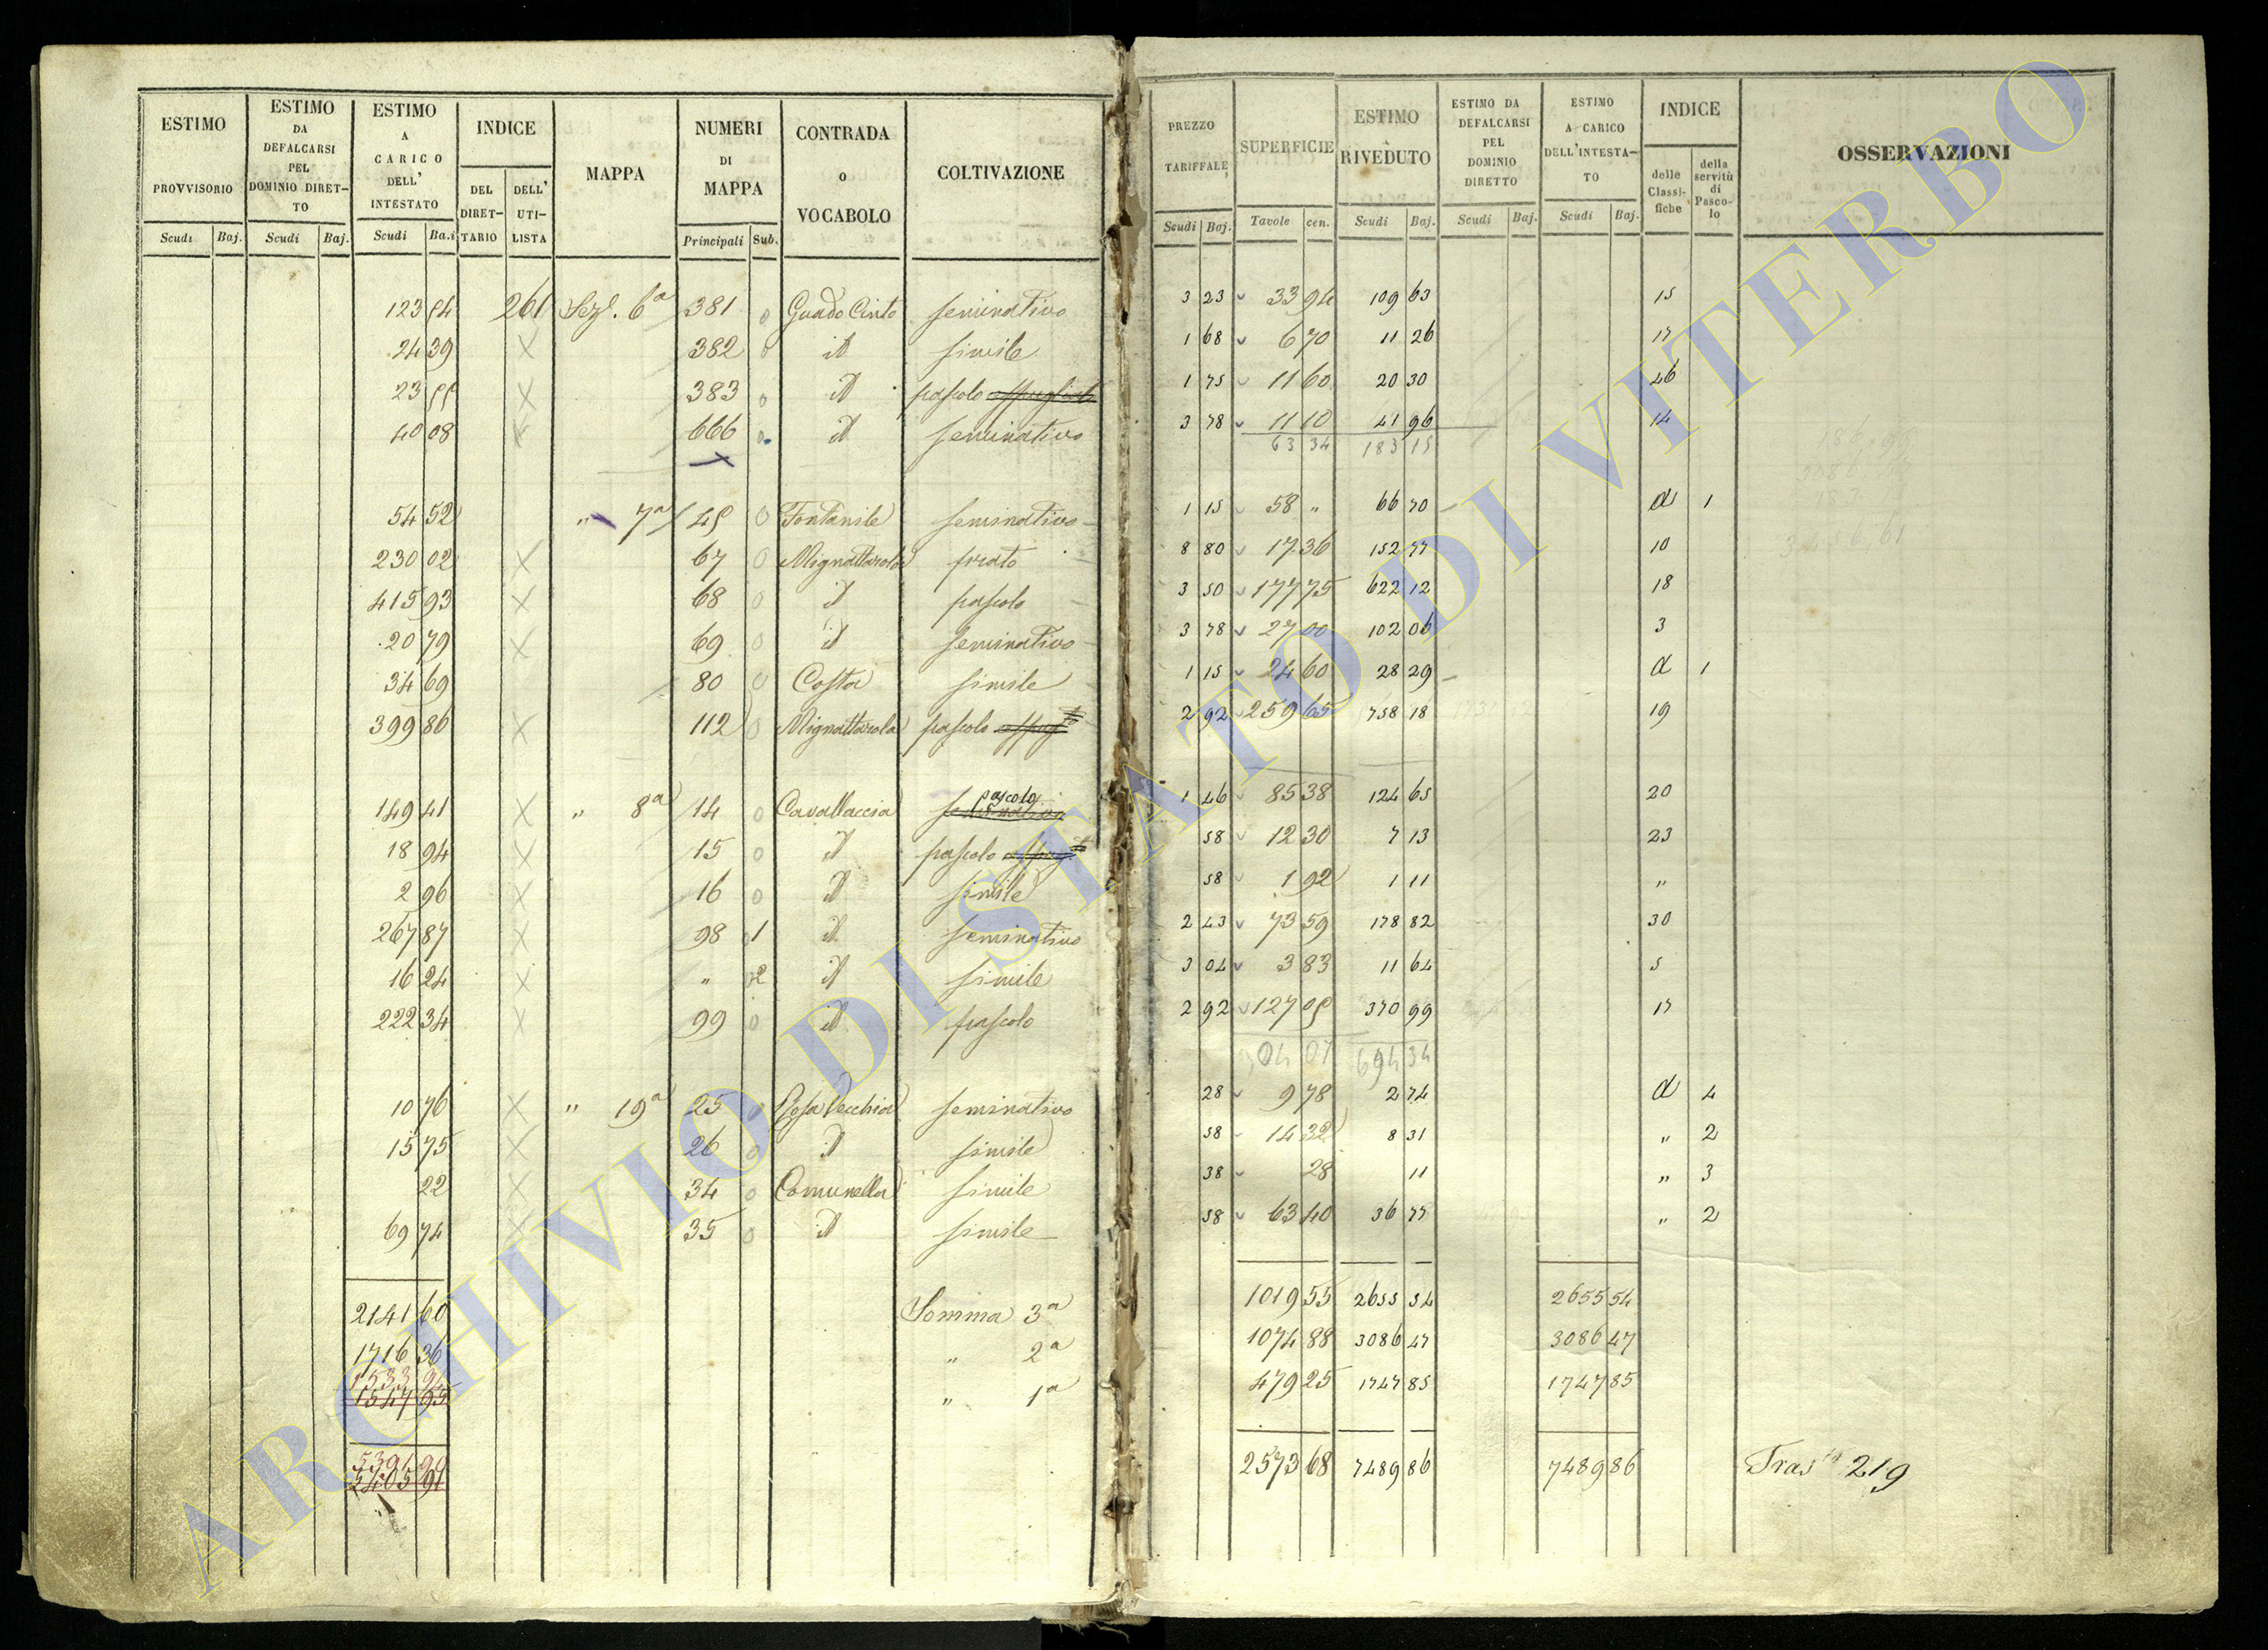 ESTIMO PROVVISORIO Scudi Baj.
ESTIMO DA DEFALCARSI PEL DOMINIO DIRETTO Scudi Baj.
ESTIMO A CARICO DELL' INTESTATO Scudi Ba.i
INDICE DEL DIRETTARIO DELL' UTILISTA
MAPPA
NUMERI DI MAPPA Principali Sub.
CONTRADA o VOCABOLO
COLTIVAZIONE
PREZZO TARIFFALE Scudi Baj.
SUPERFICIE Tavole cen.
ESTIMO RIVEDUTO Scudi Baj.
ESTIMO DA DEFALCARSI PEL DOMINIO DIRETTO Scudi Baj.
ESTIMO A CARICO DELL'INTESTATO Scudi Baj.
INDICE delle Classifiche della servitù di Pascolo
OSSERVAZIONI
123 54 261 Sez. 6a 381 0 Guado Cinto seminativo 3 23 33 94 109 63 15
24 39 X 382 0 id simile 1 68 6 70 11 26 17
23 55 X 383 0 id pascolo 1 75 11 60 20 30 46
40 08 X 666 0 id seminativo 3 78 11 10 41 96 14
63 34 183 15
54 52 " 7a 45 0 Fontanile seminativo 1 15 58 " 66 70 d 1
230 02 X 67 0 Mignattarola prato 8 80 17 36 152 77 10
415 93 X 68 0 id pascolo 3 50 177 75 622 12 18
20 79 X 69 0 id seminativo 3 78 27 00 102 06 3
34 69 80 0 Costa simile 1 15 24 60 28 29 d 1
399 86 X 112 0 Mignattarola pascolo 2 92 259 65 758 18 19
149 41 X " 8a 14 0 Cavallaccia pascolo 1 46 85 38 124 65 20
18 94 X 15 0 id pascolo 58 12 30 7 13 23
2 96 X 16 0 id simile 58 1 92 1 11 "
267 87 X 98 1 id seminativo 2 43 73 59 178 82 30
16 24 X " 2 id simile 3 04 3 83 11 64 5
222 34 X 99 0 id pascolo 2 92 127 05 370 99 17
694 34
10 76 X " 19a 25 0 Vecchia seminativo 28 9 78 2 74 d 4
15 75 X 26 0 id simile 58 14 32 8 31 " 2
22 X 34 0 Comunella simile 38 28 11 " 3
69 74 X 35 0 id simile 58 63 40 36 77 " 2
2141 60 Somma 3a 1019 55 2655 54 2655 54
1716 36 " 2a 1074 88 3086 47 3086 47
1533 94
1547 95 " 1a 479 25 1747 85 1747 85
5391 90
5405 91 2573 68 7489 86 7489 86 Tras to 219
ARCHIVIO DI STATO DI VITERBO